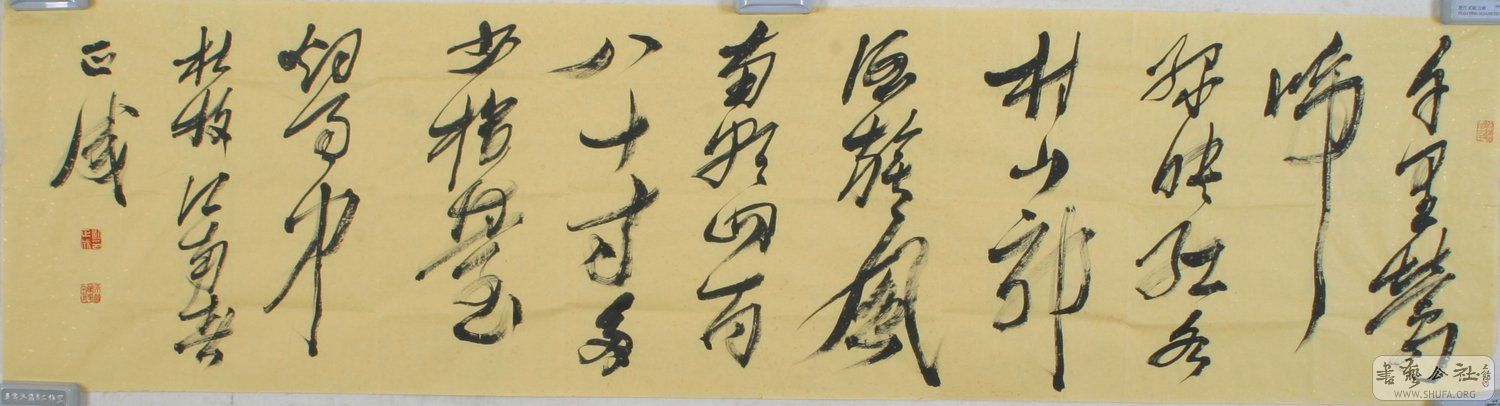 千里鶯
啼
綠映紅水
村山郭
酒旗風
南朝四百
八十寺多
少樓臺
烟雨中
杜牧江南春
正成
書藝公社
WWW.SHUFA.ORG